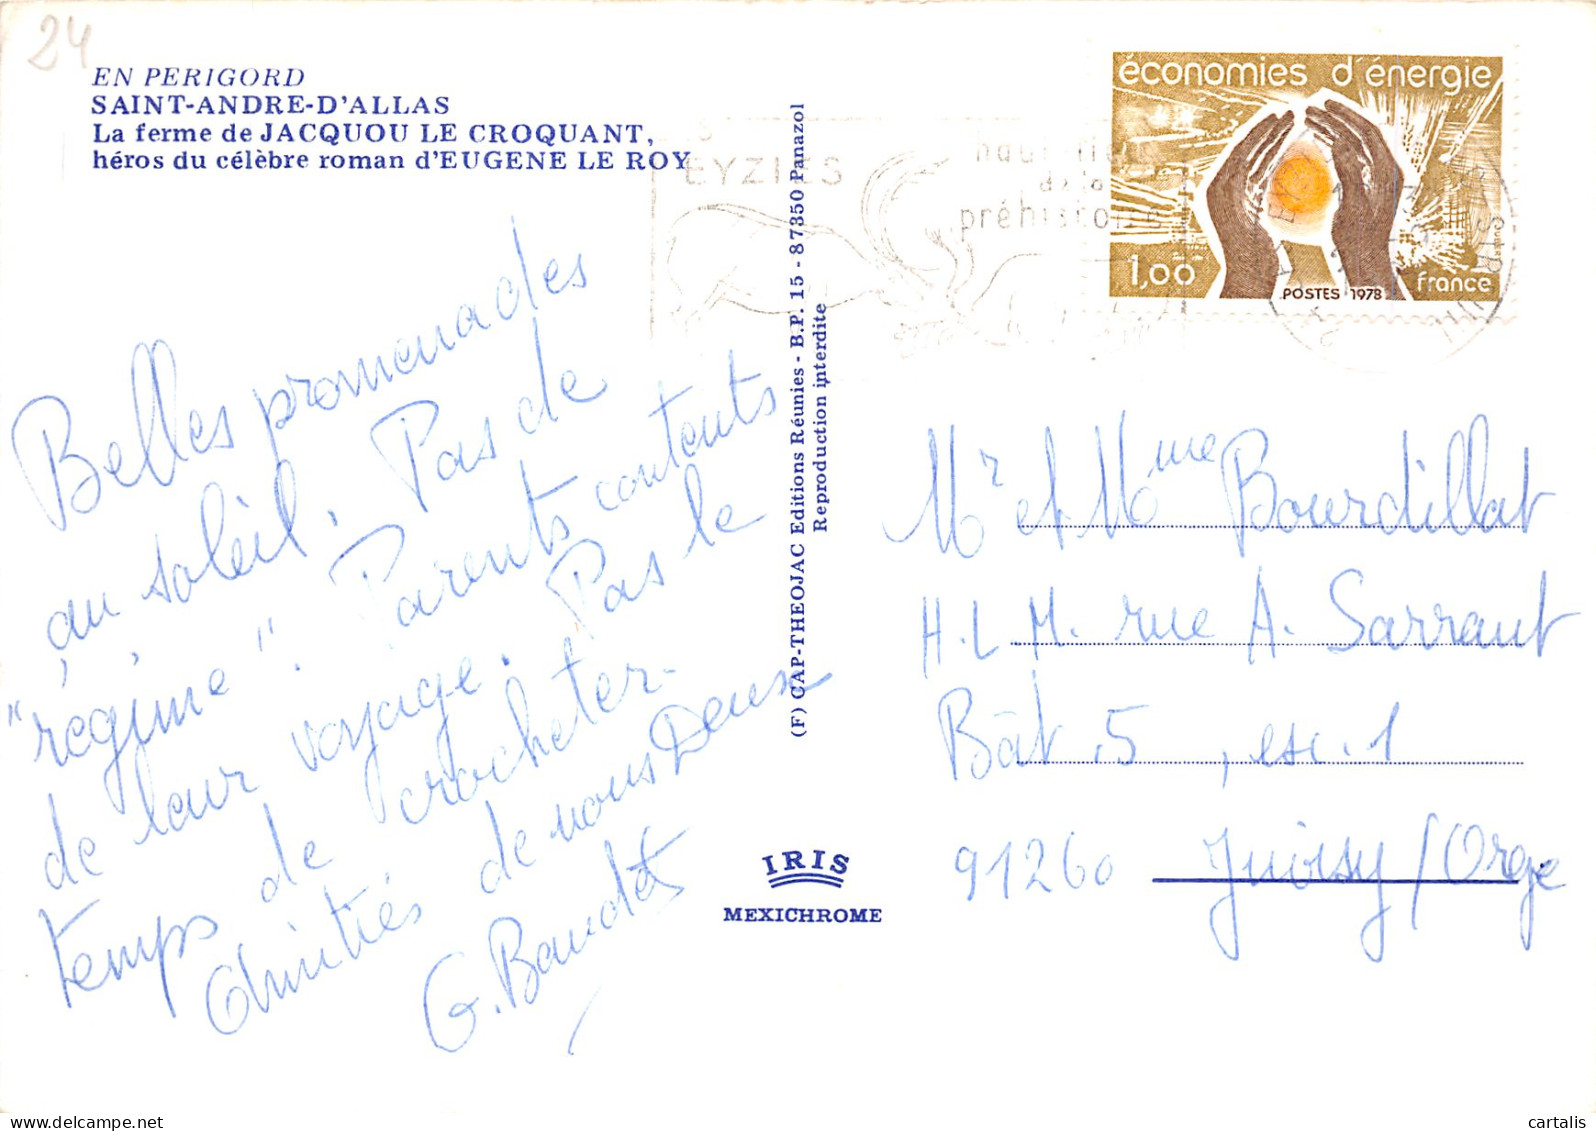 24
EN PERIGORD
SAINT-ANDRE-D'ALLAS
La ferme de JACQUOU LE CROQUANT,
héros du célèbre roman d'EUGENE LE ROY
Belles promenades
au soleil. Pas de
"régime". Parents contents
de leur voyage. Pas le
temps de crocheter.
Amitiés de nous Deux
G. Baudet
(F) CAP-THEOJAC Editions Réunies - B.P. 15 - 87350 Panazol
Reproduction interdite
IRIS
MEXICHROME
EYZIES
haut lieu
de la
préhistoire
économies d'énergie
1,00
POSTES 1978
france
Mr et Mme Bourdillat
H.L.M. rue A. Sarraut
Bât 5, esc. 1
91260 Juvisy/Orge
cartalis
delcampe.net